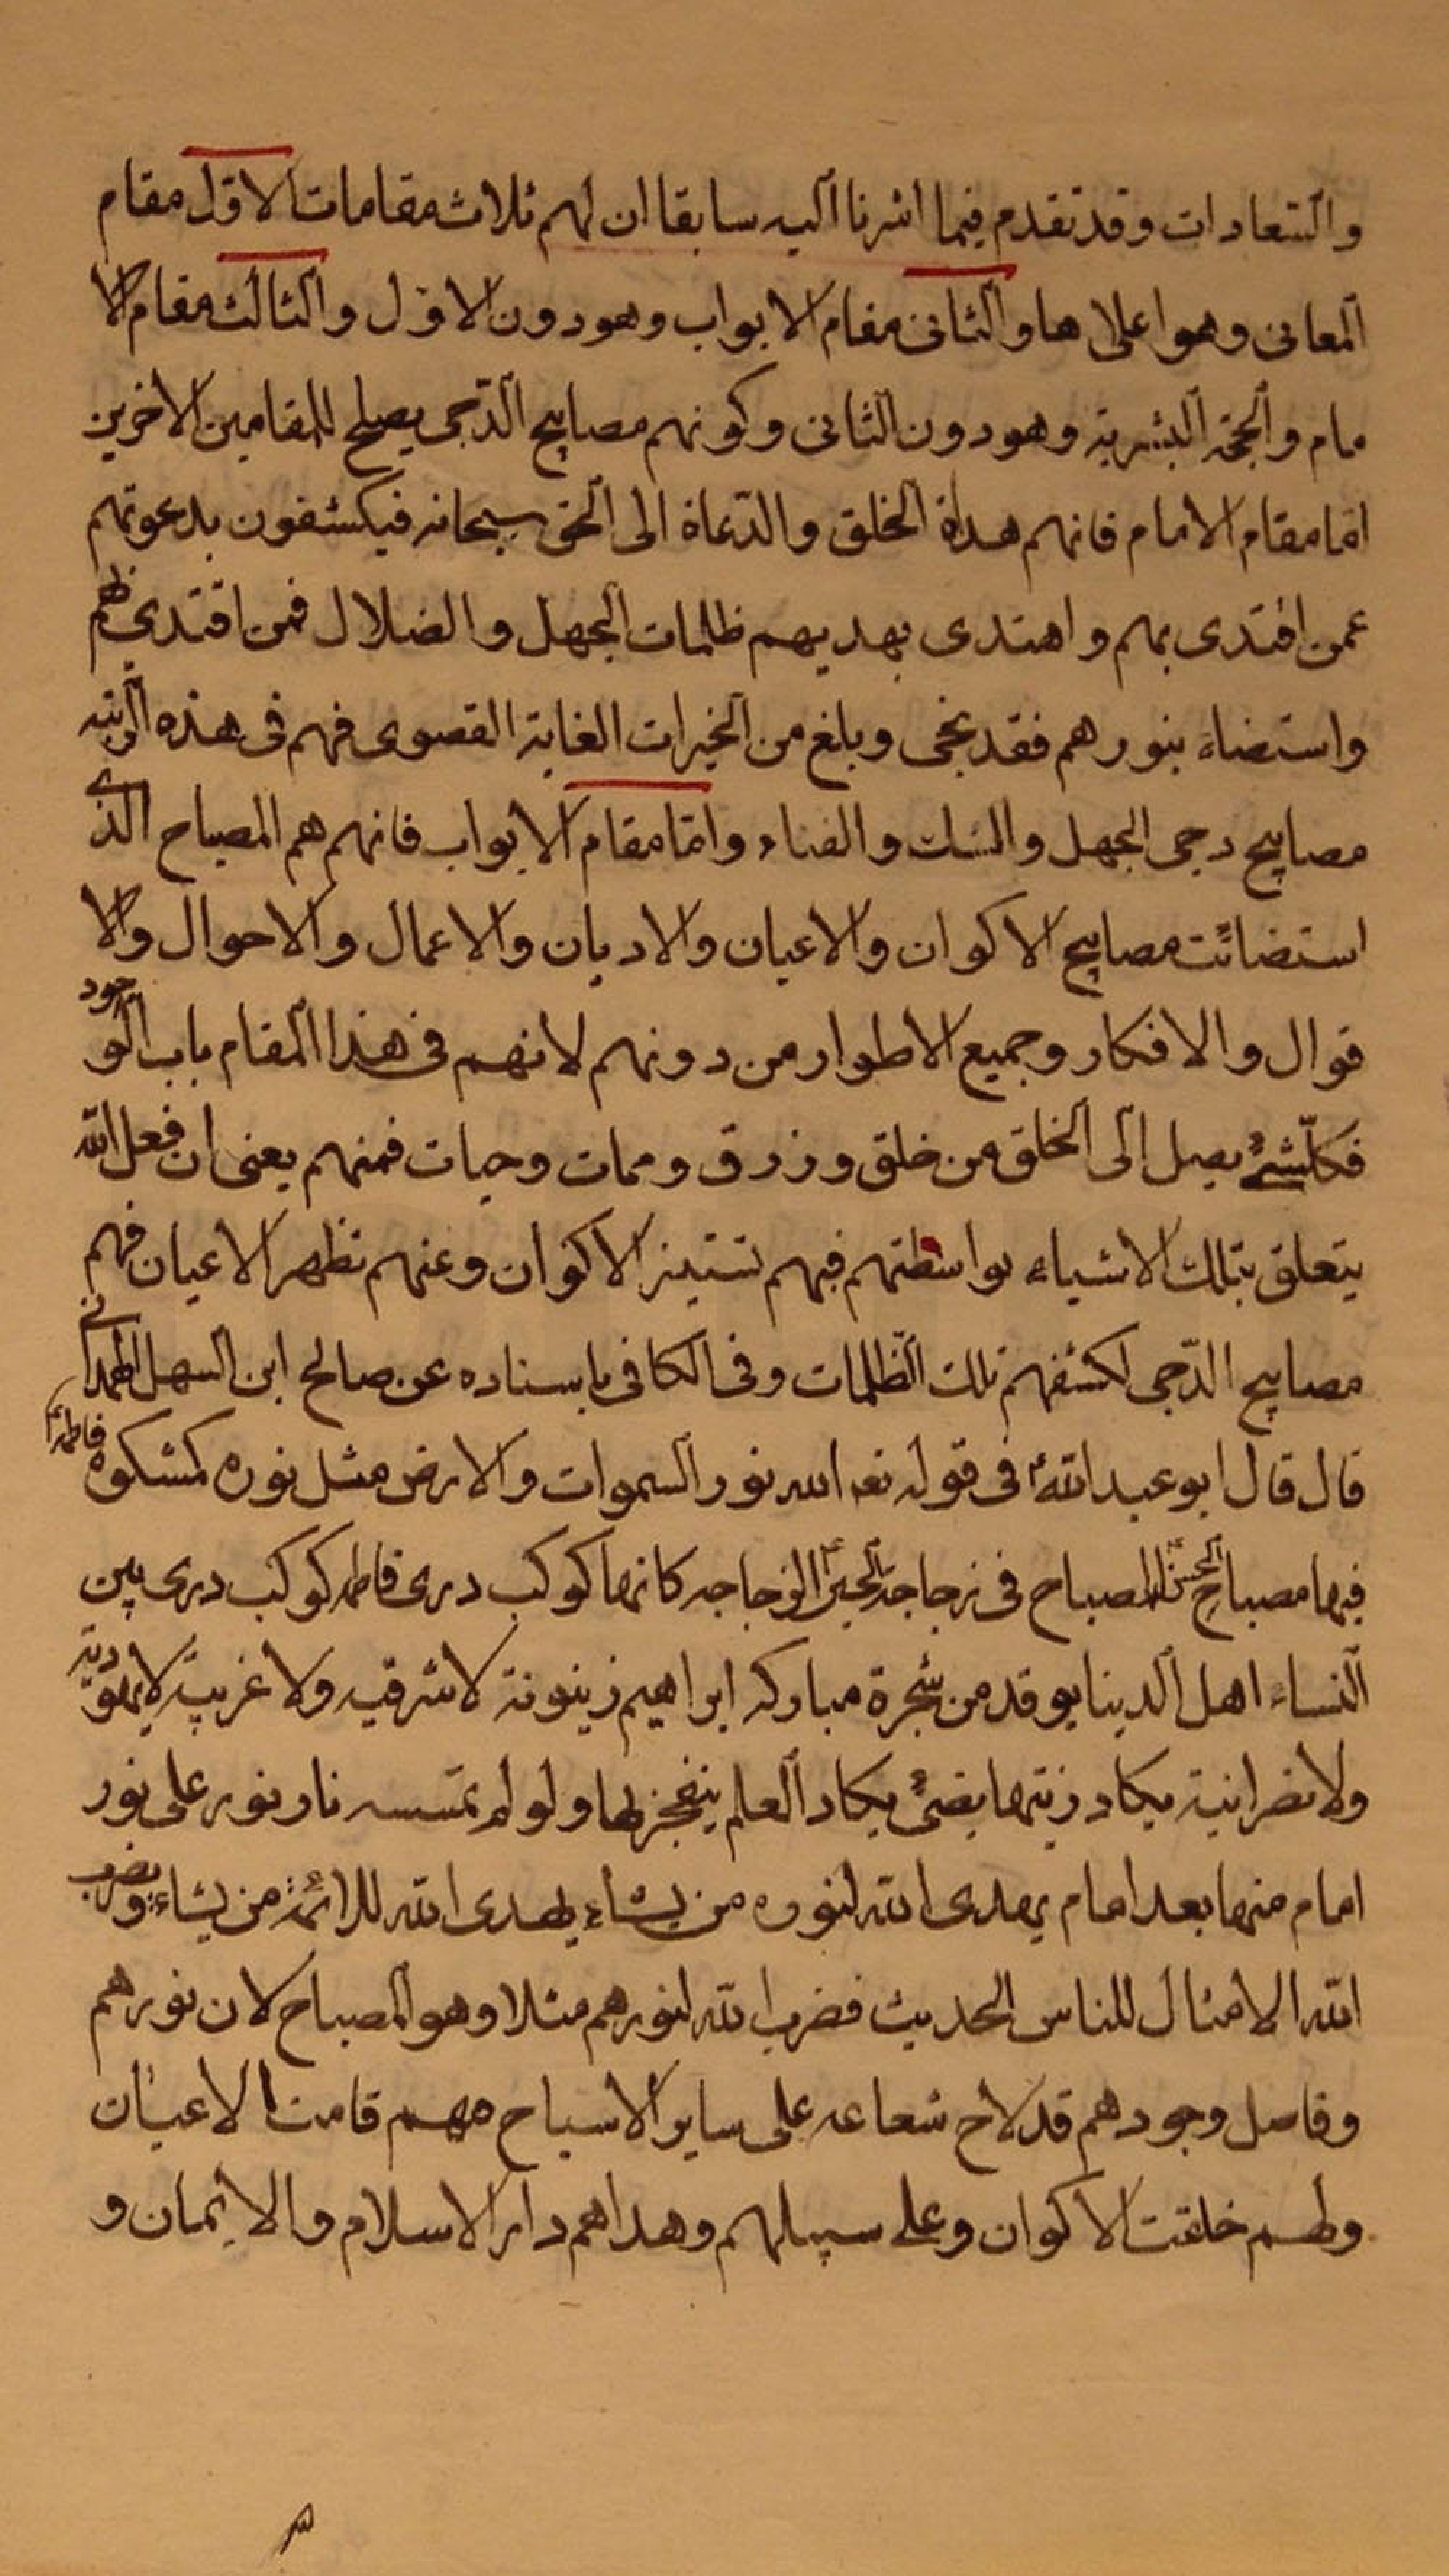 والسعادات وقد تقدم فيما اشرنا اليه سابقا ان لهم ثلاث مقامات الاول مقام
المعانى وهو اعلاها والثانى مقام الابواب وهو دون الاول والثالث مقام الا
مام والحجة البشرية وهو دون الثانى وكونهم مصابيح الدّجى يصلح للمقامين الاخرين
امّا مقام الامام فانهم هداة الخلق والدّعاة الى الحق سبحانه فيكشفون بدعوتهم
عمن اقتدى بهم واهتدى بهديهم ظلمات الجهل والضلال فمن اقتدى بهم
واستضاء بنورهم فقد نجى وبلغ من الخيرات الغاية القصوى فهم فى هذه الرتبه
مصابيح دجى الجهل والشك والفناء وامّا مقام الابواب فانهم هم المصباح الذى
استضائت مصابيح الاكوان والاعيان والاديان والاعمال والاحوال والا
قوال والافكار وجميع الاطوار من دونهم لانهم فى هذا المقام باب الوجود
فكلّ شئ يصل الى الخلق من خلق ورزق وممات وحيات فمنهم يعنى ان فعل الله
يتعلق بتلك الاشياء بواسطتهم فبهم تستنير الاكوان وعنهم تظهر الاعيان فهم
مصابيح الدّجى لكشفهم تلك الظّلمات وفى الكافى باسناده عن صالح ابن السهل الهمدانى
قال قال ابو عبد الله ع فى قوله تعه الله نور السموات والارض مثل نوره كمشكوة فاطمة ع
فيها مصباح الحسن ع المصباح فى زجاجة الحسين ع الزجاجه كانها كوكب درى فاطمه كوكب درى بين
النساء اهل الدينا يوقد من شجرة مباركه ابراهيم زيتونة لا شرقيه ولا غربيّة لا يهوديّة
ولا نصرانية يكاد زيتها يضئ يكاد العلم ينفجر بها ولو لم تمسسه نار نور على نور
امام منها بعد امام يهدى الله لنوره من يشاء يهدى الله للائمّة ع من يشاء ويضرب
الله الامثال للناس الحديث فضرب الله لنورهم مثلا وهو المصباح لان نورهم
وفاصل وجودهم قد لاح شعاعه على ساير الاسباح مهم قامت الاعيان
ولهم خلقت الاكوان وعلى سبيلهم وهداهم دار الاسلام والايمان و